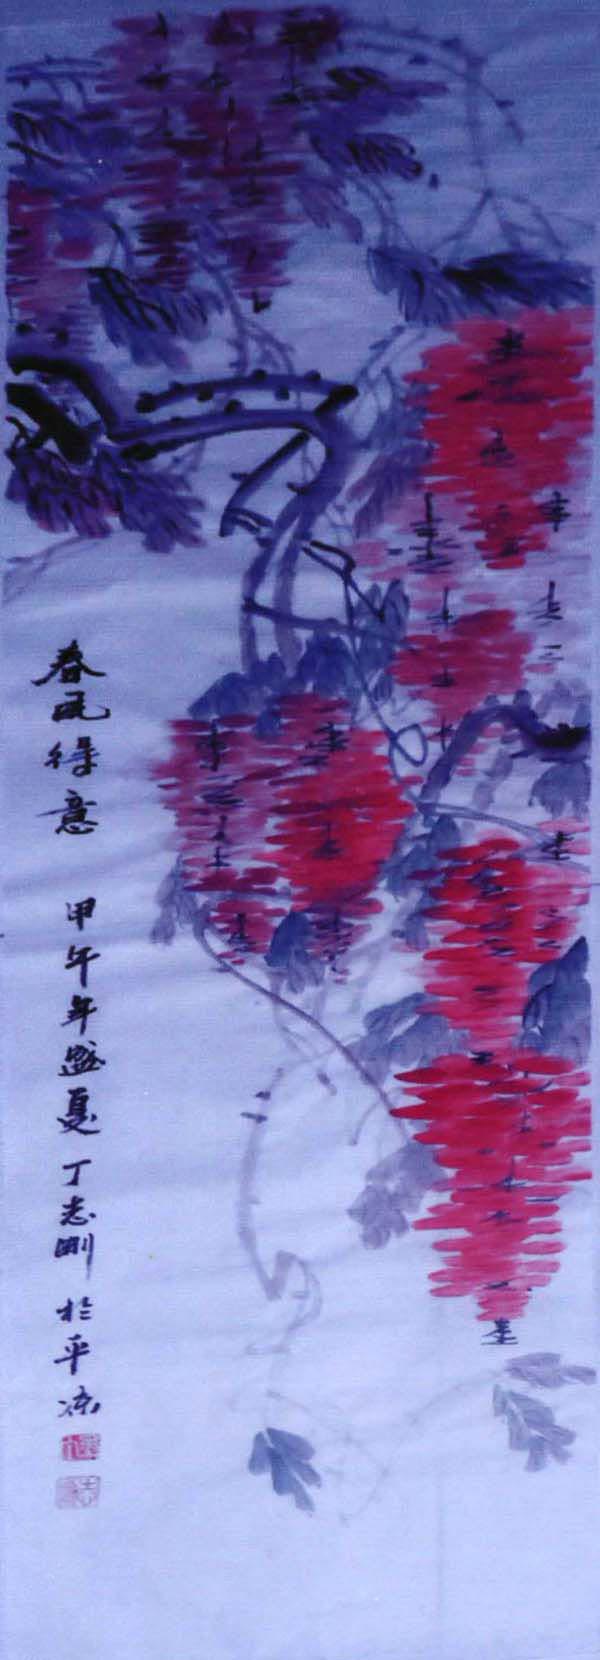 春风得意 甲午年盛夏 丁志刚 於平凉